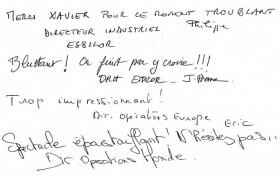 MERCI XAVIER POUR CE MOMENT TROUBLANT
Philippe
DIRECTEUR INDUSTRIEL
ESSILOR
Bluffant! On finit par y croire!!!
DRH
Trop impressionnant!
Dir. Opérations Europe Eric
Spectacle époustouflant! N'hésitez pas..
Dir Operations Monde.